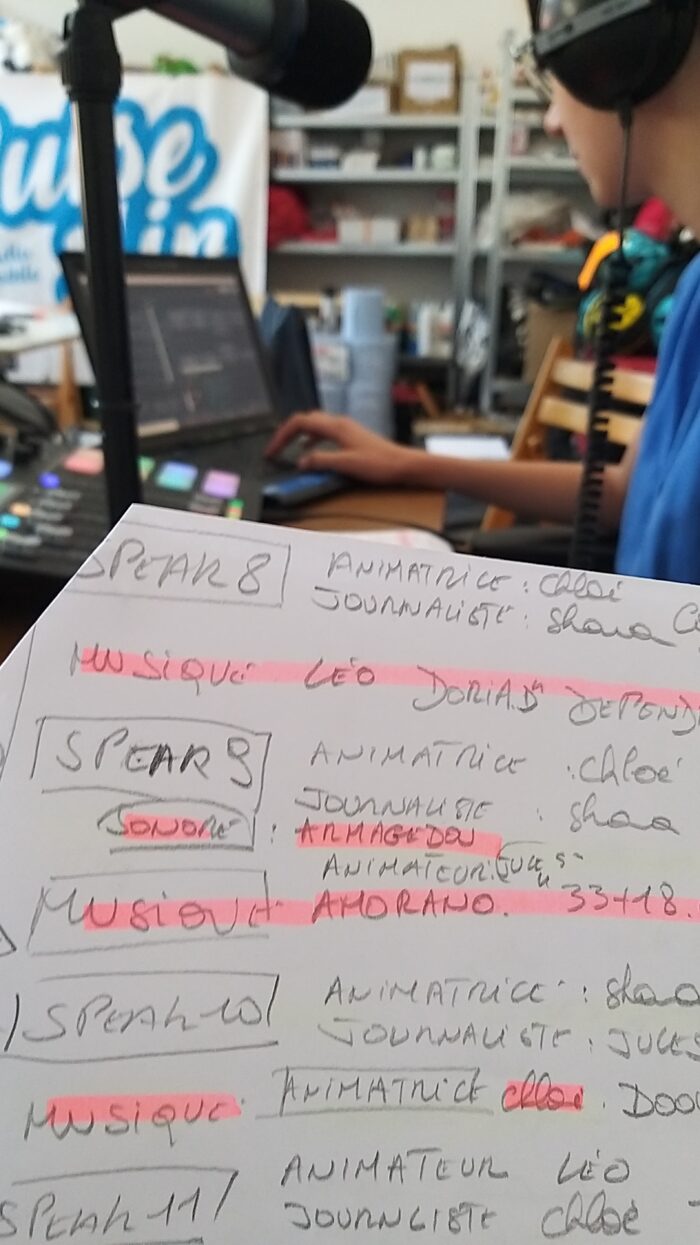 SPEAK 8
ANIMATRICE : Chloé
JOURNALISTE : Shana
MUSIQUE LÉO DORIAD" DEPEND
SPEAK 9
ANIMATRICE : Chloé
JOURNALISTE : Shaa
SONORE : ARMAGEDOU
ANIMATEUR: JULES
MUSIQUE AMORANO. "33+18.
SPEAK 10
ANIMATRICE : Shaa
JOURNALISTE : JULES
MUSIQUE ANIMATRICE Chloé. DOO
SPEAK 11
ANIMATEUR LÉO
JOURNLISTE Chloé